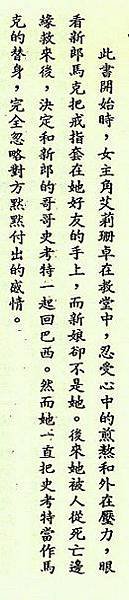 此書開始時，女主角艾莉珊卓在教堂中，忍受心中的煎熬和外在壓力，眼
看新郎馬克把戒指套在她好友的手上，而新娘卻不是她。後來她被人從死亡邊
緣救來後，決定和新郎的哥哥史考特一起回巴西。然而她一直把史考特當作馬
克的替身，完全忽略對方黙黙付出的感情。